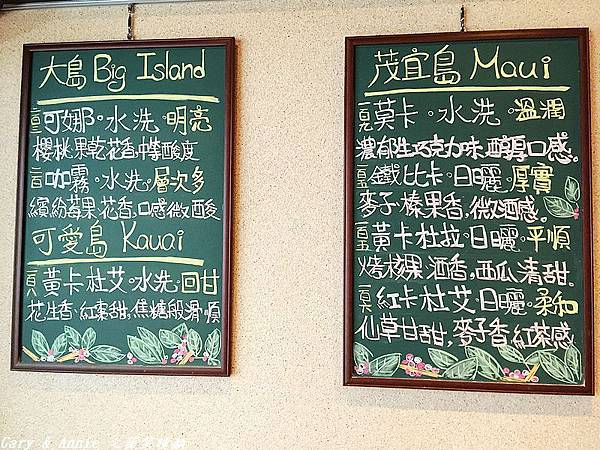 大島 Big Island
可娜。水洗。明亮
櫻桃果乾花香,中等酸度
咖霧。水洗。層次多
繽紛莓果。花香,口感微酸
可愛島 Kauai
黃卡杜艾。水洗。回甘
花生香。紅棗甜,焦糖般滑順
茂宜島 Maui
莫卡。水洗。溫潤
濃郁生巧克力味。醇厚口感。
鐵比卡。日曬。厚實
麥子。榛果香,微酒感。
黃卡杜拉。日曬。平順
烤核果。酒香,西瓜清甜。
紅卡杜艾。日曬。柔和
仙草甘甜,麥子香紅茶感
Gary & Annie